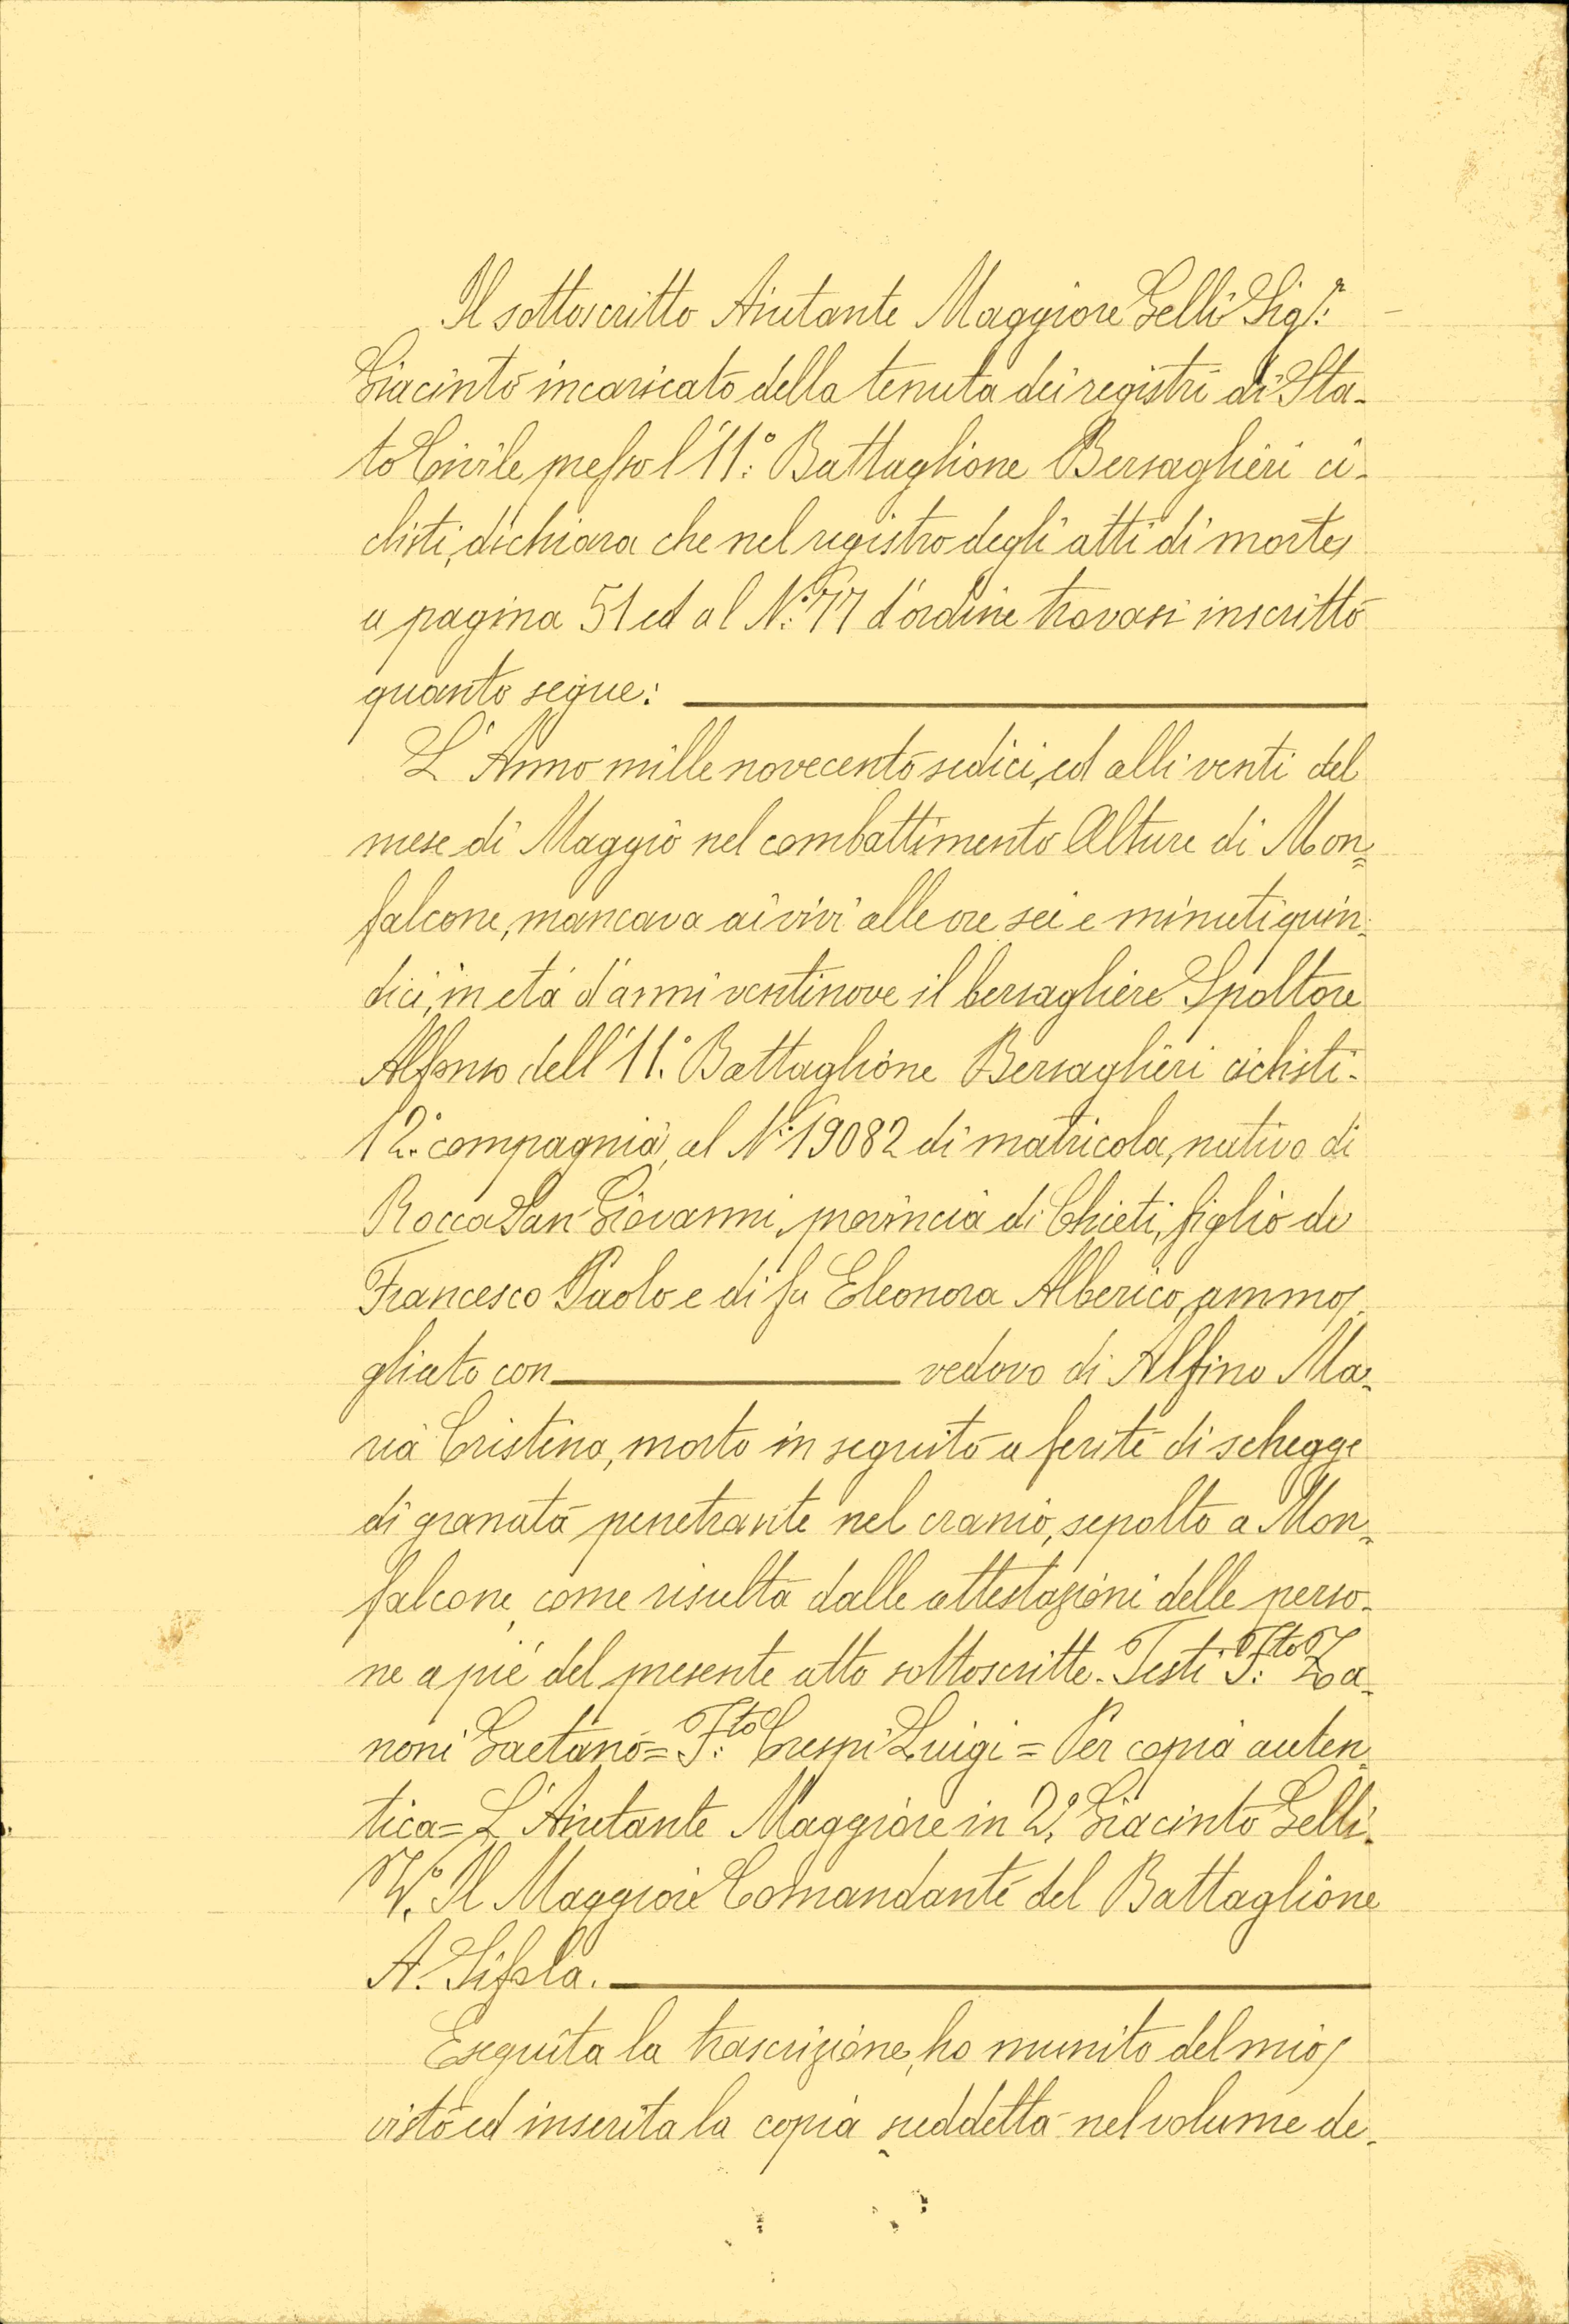 Il sottoscritto Aiutante Maggiore Gelli Sigr:
Giacinto incaricato della tenuta dei registri di Sta-
to Civile presso l'11° Battaglione Bersaglieri ci-
clisti, dichiara che nel registro degli atti di morte,
a pagina 51 ed al N° 77 d'ordine trovasi inscritto
quanto segue:
L'Anno mille novecento sedici, ed alli venti del
mese di Maggio nel combattimento Alture di Mon=
falcone, mancava ai vivi alle ore sei e minuti quin=
dici, in età d'anni ventinove il bersagliere Spoltore
Alfonso dell'11° Battaglione Bersaglieri ciclisti-
12ª compagnia, al N° 19082 di matricola, nativo di
Rocca San Giovanni, provincia di Chieti, figlio di
Francesco Paolo e di fu Eleonora Alberico, ammo-
gliato con vedovo di Alfino Ma-
ria Cristina, morto in seguito a ferite di schegge
di granata penetrante nel cranio, sepolto a Mon=
falcone, come risulta dalle attestazioni delle perso-
ne a piè del presente atto sottoscritte. Testi F.to Za-
noni Gaetano = F.to Crespi Luigi = Per copia auten-
tica = L'Aiutante Maggiore in 2° Giacinto Gelli.
V° Il Maggiore Comandante del Battaglione
A.
Eseguita la trascrizione, ho munito del mio
visto ed inserita la copia suddetta nel volume de-